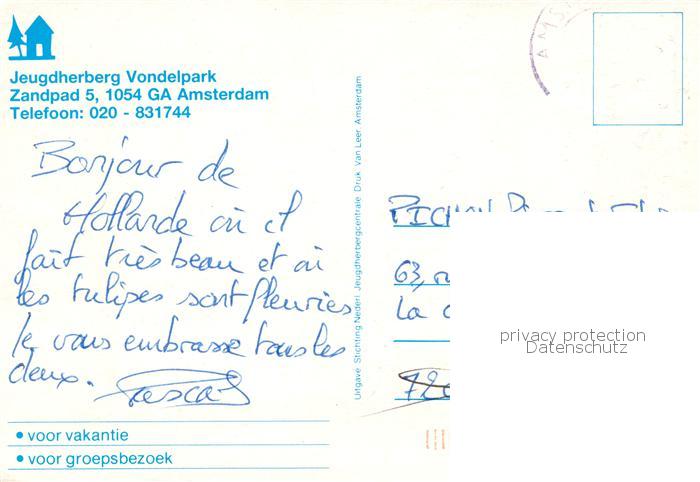 Jeugdherberg Vondelpark
Zandpad 5, 1054 GA Amsterdam
Telefoon: 020 - 831744
Bonjour de
Hollande où il
fait très beau et où
les tulipes sont fleuries
Je vous embrasse tous les
deux. Pascal
• voor vakantie
• voor groepsbezoek
Uitgave Stichting Nederl. Jeugdherbergcentrale Druk Van Leer Amsterdam
AMS
63,
La
privacy protection
Datenschutz